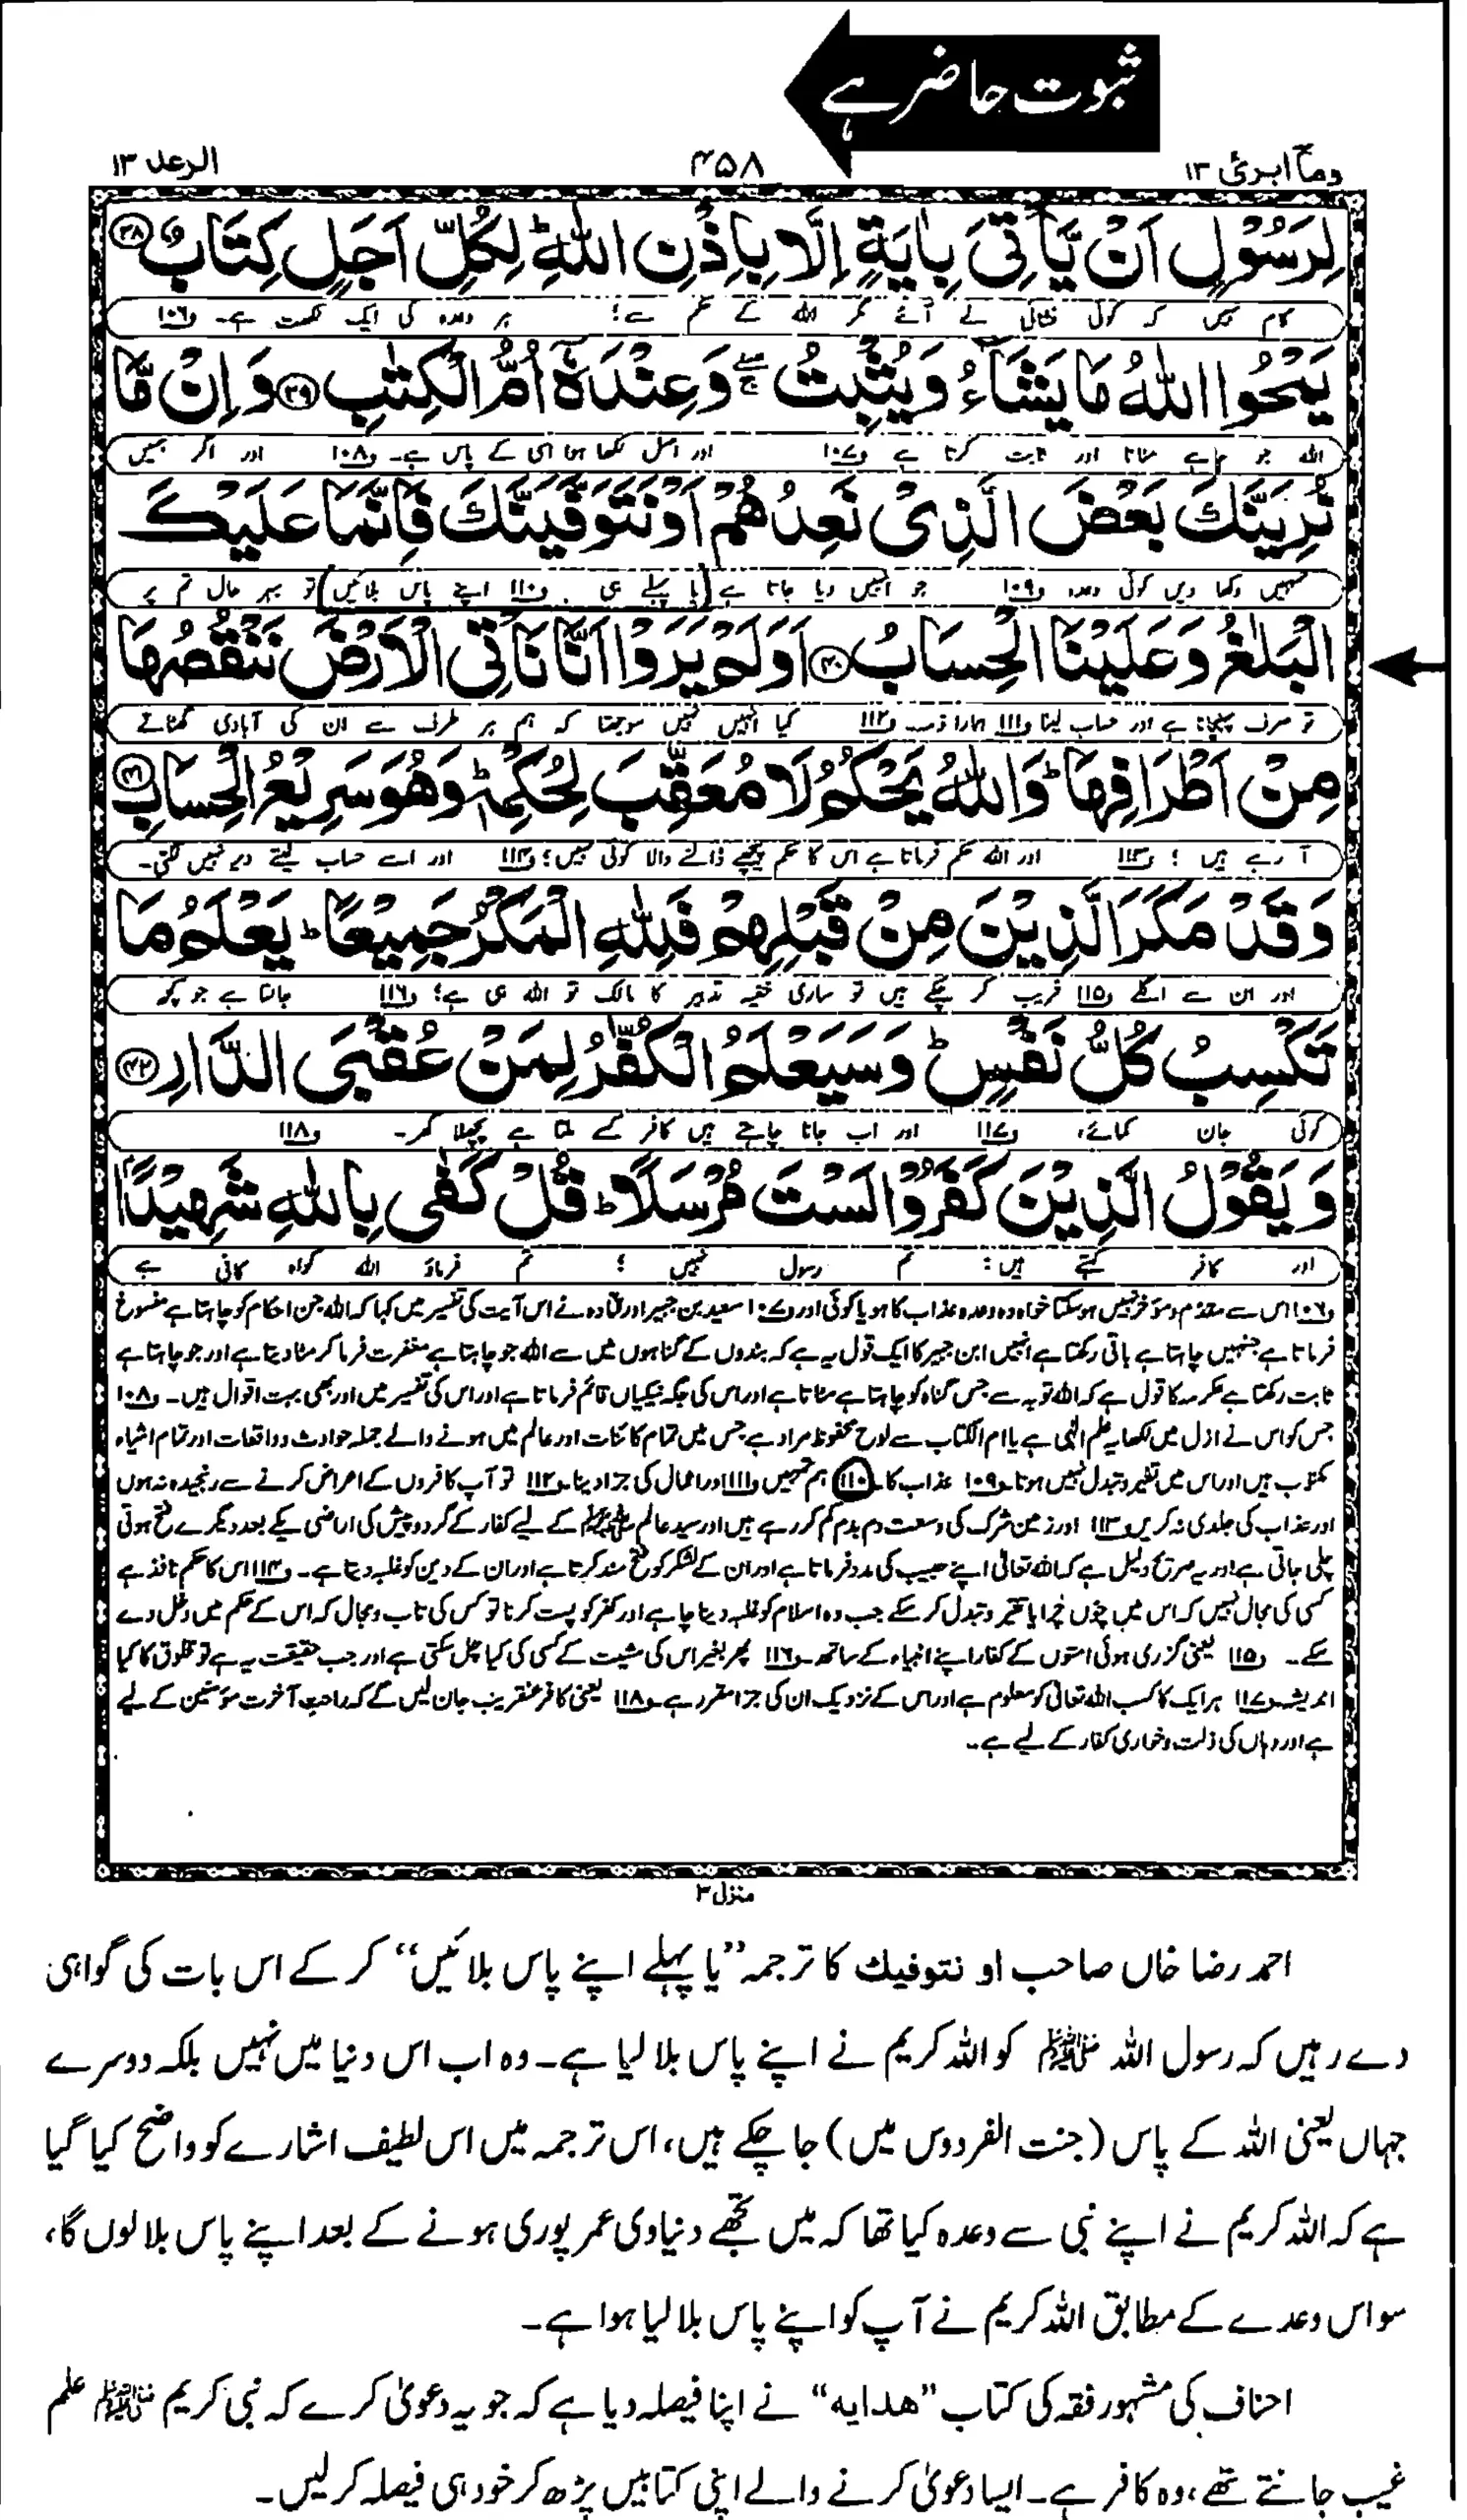 ثبوت حاضر ہے
وما ابرئ ١٣
۴۵۸
الرعد ١٣
لِرَسُوْلٍ اَنْ يَّاْتِيَ بِاٰيَةٍ اِلَّا بِاِذْنِ اللّٰهِ ؕ لِكُلِّ اَجَلٍ كِتَابٌ ﴿۳۸﴾
کام نہیں کہ کوئی نشانی لے آئے مگر اللہ کے حکم سے؛ ہر وعدہ کی ایک لکھت ہے۔ و۱۰۶
يَمْحُوا اللّٰهُ مَا يَشَآءُ وَيُثْبِتُ ۖۚ وَعِنْدَهٗۤ اُمُّ الْكِتٰبِ ﴿۳۹﴾ وَاِنْ مَّا
اللہ جو چاہے مٹاتا اور ثابت کرتا ہے و۱۰۷ اور اصل لکھا ہوا اسی کے پاس ہے۔ و۱۰۸ اور اگر ہمیں
نُرِيَنَّكَ بَعْضَ الَّذِيْ نَعِدُهُمْ اَوْ نَتَوَفَّيَنَّكَ فَاِنَّمَا عَلَيْكَ
تمہیں دکھا دیں کوئی وعدہ و۱۰۹ جو انہیں دیا جاتا ہے (یا پہلے ہی و۱۱۰ اپنے پاس بلائیں) تو بہر حال تم پر
الْبَلٰغُ وَعَلَيْنَا الْحِسَابُ ﴿۴۰﴾ اَوَلَمْ يَرَوْا اَنَّا نَاْتِي الْاَرْضَ نَنْقُصُهَا
تو صرف پہنچانا ہے اور حساب لینا و۱۱۱ ہمارا ذمہ و۱۱۲ کیا انہیں نہیں سوجھتا کہ ہم ہر طرف سے ان کی آبادی گھٹاتے
مِنْ اَطْرَافِهَا ؕ وَاللّٰهُ يَحْكُمُ لَا مُعَقِّبَ لِحُكْمِهٖ ؕ وَهُوَ سَرِيْعُ الْحِسَابِ ﴿۴۱﴾
آ رہے ہیں ؛ و۱۱۳ اور اللہ حکم فرماتا ہے اس کا حکم پیچھے ڈالنے والا کوئی نہیں؛ و۱۱۴ اور اسے حساب لیتے دیر نہیں لگتی۔
وَقَدْ مَكَرَ الَّذِيْنَ مِنْ قَبْلِهِمْ فَلِلّٰهِ الْمَكْرُ جَمِيْعًا ؕ يَعْلَمُ مَا
اور ان سے اگلے و۱۱۵ فریب کر چکے ہیں تو ساری خفیہ تدبیر کا مالک تو اللہ ہی ہے؛ و۱۱۶ جانتا ہے جو کچھ
تَكْسِبُ كُلُّ نَفْسٍ ؕ وَسَيَعْلَمُ الْكُفّٰرُ لِمَنْ عُقْبَى الدَّارِ ﴿۴۲﴾
کوئی جان کمائے، و۱۱۷ اور اب جانا چاہتے ہیں کافر کسے ملتا ہے پچھلا گھر۔ و۱۱۸
وَيَقُوْلُ الَّذِيْنَ كَفَرُوْا لَسْتَ مُرْسَلًا ؕ قُلْ كَفٰى بِاللّٰهِ شَهِيْدًاۢ
اور کافر کہتے ہیں: تم رسول نہیں ؛ تم فرماؤ اللہ گواہ کافی ہے
و۱۰۶ اس سے مقدم و مؤخر نہیں ہوسکتا خواہ وہ وعدہ عذاب کا ہو یا کوئی اور و۱۰۷ سعید بن جبیر اور قتادہ نے اس آیت کی تفسیر میں کہا کہ اللہ جن احکام کو چاہتا ہے منسوخ
فرماتا ہے جنہیں چاہتا ہے باقی رکھتا ہے انہیں ابن جبیر کا ایک قول یہ ہے کہ بندوں کے گناہوں میں سے اللہ جو چاہتا ہے مغفرت فرما کر مٹا دیتا ہے اور جو چاہتا ہے
ثابت رکھتا ہے عکرمہ کا قول ہے کہ اللہ توبہ سے جس گناہ کو چاہتا ہے مٹاتا ہے اور اس کی جگہ نیکیاں قائم فرماتا ہے اور اس کی تفسیر میں اور بھی بہت اقوال ہیں۔ و۱۰۸
جس کو اس نے ازل میں لکھا یہ علم الٰہی ہے یا ام الکتاب سے لوح محفوظ مراد ہے جس میں تمام کائنات اور عالم میں ہونے والے جملہ حوادث و واقعات اور تمام اشیاء
مکتوب ہیں اور اس میں تغیر و تبدل نہیں ہوتا۔ و۱۰۹ عذاب کا و۱۱۰ ہم تمہیں و۱۱۱ اور اعمال کی جزا دینا۔ و۱۱۲ تو آپ کافروں کے اعراض کرنے سے رنجیدہ نہ ہوں
اور عذاب کی جلدی نہ کریں و۱۱۳ اور زمین شرک کی وسعت دم بدم کم کر رہے ہیں اور سید عالم ﷺ کے لیے کفار کے گرد و پیش کی اراضی یکے بعد دیگرے فتح ہوتی
چلی جاتی ہے اور یہ صریح دلیل ہے کہ اللہ تعالیٰ اپنے حبیب کی مدد فرماتا ہے اور ان کے لشکر کو فتح مند کرتا ہے اور ان کے دین کو غلبہ دیتا ہے۔ و۱۱۴ اس کا حکم نافذ ہے
کسی کی مجال نہیں کہ اس میں چوں چرا یا تغیر و تبدل کر سکے جب وہ اسلام کو غلبہ دینا چاہے اور کفر کو پست کرنا تو کس کی تاب و مجال کہ اس کے حکم میں دخل دے
سکے۔ و۱۱۵ یعنی گزری ہوئی امتوں کے کفار اپنے انبیاء کے ساتھ۔ و۱۱۶ پھر بغیر اس کی مشیت کے کسی کی کیا چل سکتی ہے اور جب حقیقت یہ ہے تو مخلوق کا کیا
اندیشہ۔ و۱۱۷ ہر ایک کا کسب اللہ تعالیٰ کو معلوم ہے اور اس کے نزدیک ان کی جزا مقرر ہے۔ و۱۱۸ یعنی کافر عنقریب جان لیں گے کہ راحت آخرت مؤمنین کے لیے
ہے اور وہاں کی ذلت و خواری کفار کے لیے ہے۔
منزل ۳
احمد رضا خاں صاحب او نتوفیك کا ترجمہ ”یا پہلے اپنے پاس بلائیں“ کر کے اس بات کی گواہی
دے رہیں کہ رسول اللہ ﷺ کو اللہ کریم نے اپنے پاس بلا لیا ہے۔ وہ اب اس دنیا میں نہیں بلکہ دوسرے
جہاں یعنی اللہ کے پاس (جنت الفردوس میں) جا چکے ہیں، اس ترجمہ میں اس لطیف اشارے کو واضح کیا گیا
ہے کہ اللہ کریم نے اپنے نبی سے وعدہ کیا تھا کہ میں تجھے دنیاوی عمر پوری ہونے کے بعد اپنے پاس بلا لوں گا،
سو اس وعدے کے مطابق اللہ کریم نے آپ کو اپنے پاس بلا لیا ہوا ہے۔
احناف کی مشہور فقہ کی کتاب ”ھدایہ“ نے اپنا فیصلہ دیا ہے کہ جو یہ دعویٰ کرے کہ نبی کریم ﷺ علم
غیب جانتے تھے، وہ کافر ہے۔ ایسا دعویٰ کرنے والے اپنی کتابیں پڑھ کر خود ہی فیصلہ کر لیں۔